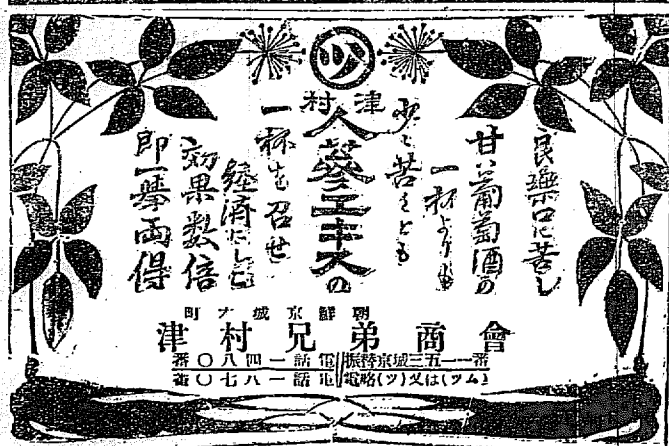 ツ
良藥口に苦し
甘い葡萄酒の
一杯よりも
少し苦くとも
津村
人蔘エキスの
一杯を召せ
經濟にして
効果数倍
即一擧両得
朝鮮京城 町
津村兄弟商會
電話一四八〇番
電話一八七〇番
振替京城三五一一番
電略(ツ)又は(ツム)